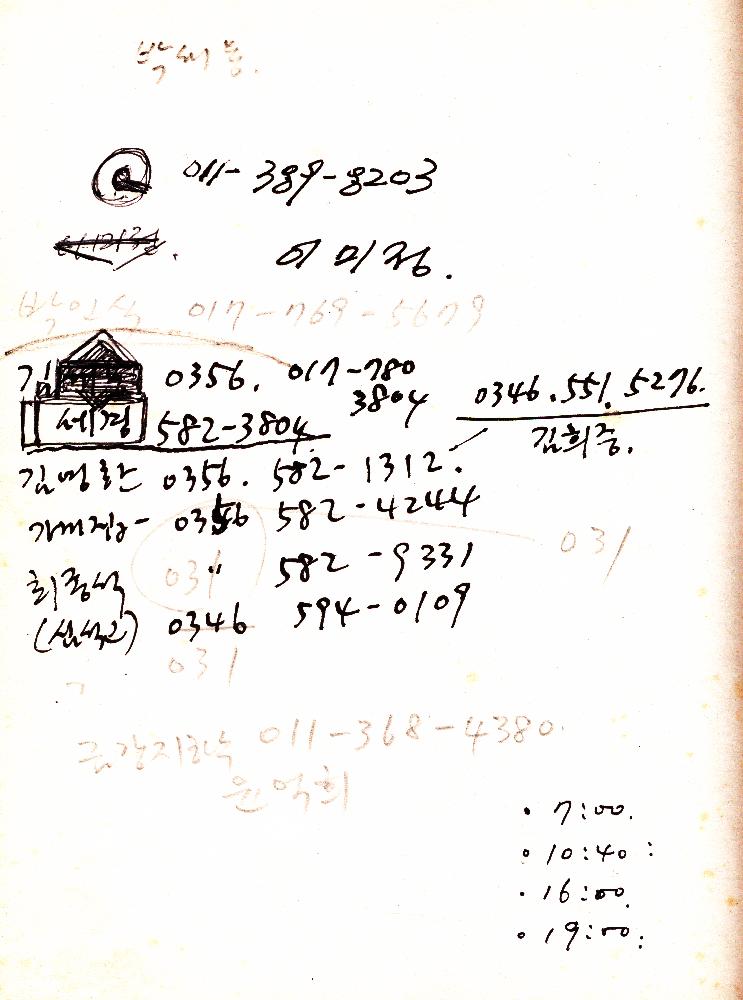 011-389-8203
이미정.
박인식 017-769-5679
김 0356. 017-780
3804
세정 582-3804
0346.551.5276.
김희중.
김명환 0356. 582-1312.
0356 582-4244
최종석 031 〃 582-9331
031
0346 594-0109
031
금강지하수 011-368-4380.
윤억희
· 7:00.
· 10:40:
· 16:00.
· 19:00: